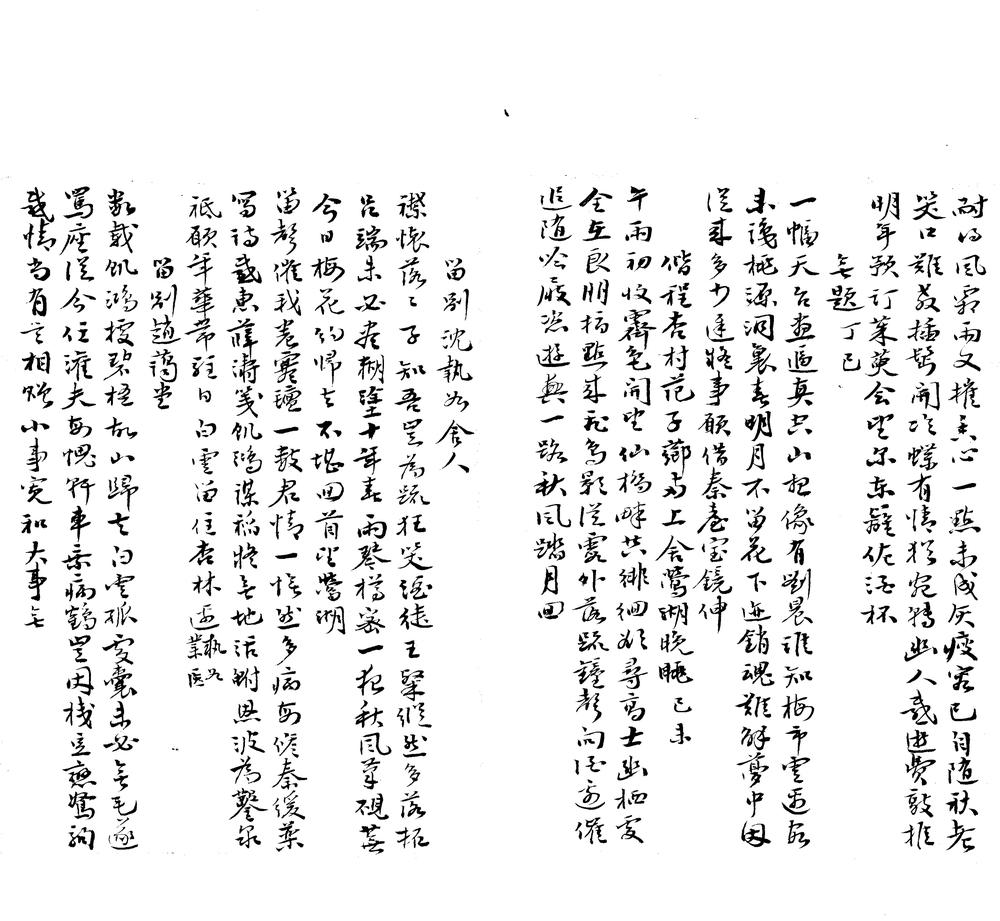 耐得風霜雨又摧素心一點未成灰瘦容已自隨秋老
笑口難教插鬢開冷蝶有情猶宛轉幽人哉進費敲推
明年預訂茱萸會望尔東籬佐酒杯
無題丁巳
一幅天台畫逼真空山想像有劉晨誰知梅市雲遮宿
未識桃源洞裏春明月不留花下迹銷魂難解夢中因
從來多少遲疑事願借秦臺寶鏡伸
偕程杏村范子薌上舍鶯湖晚眺己未
午雨初收霽色開望仙橋畔共徘徊欲尋高士幽棲處
全在良朋指點來飛鳥影從雲外落疏鐘聲向酒邊催
追隨吟屐恣遊興一路秋風踏月回
留別沈執如舍人
襟懷落落子知吾豈為疏狂哭酒徒王粲縱然多落拓
呂端未必盡糊塗十年春雨琴樽寂一夜秋風筆硯蕪
今日梅花約歸去不堪回首望鶯湖
留聲催我卷寒氈一數君情一悵然多病每修秦緩藥
寫詩感惠薛濤箋飢鴻謀稻將無地活鮒恩波為鑿泉
祗願年華帶經日白雲留住杏林邊執如業醫
留別趙蔼堂
數載飢鴻棲碧梧故山歸去白雲孤處囊未必無毛遂
罵座從今任灌夫每愧歼車乘病鶴豈因棧豆戀駑駒
感情尚有言相贈小事宜和大事無